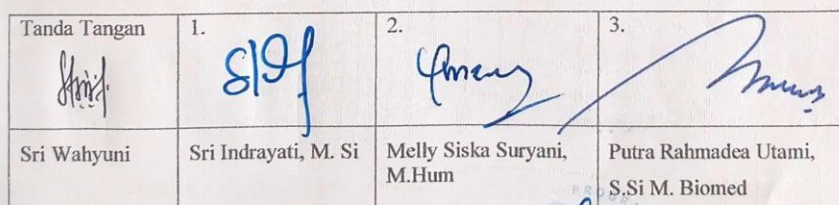 Tanda Tangan
1.
2.
3.
Sri Wahyuni
Sri Indrayati, M. Si
Melly Siska Suryani,
M.Hum
Putra Rahmadea Utami,
S.Si M. Biomed